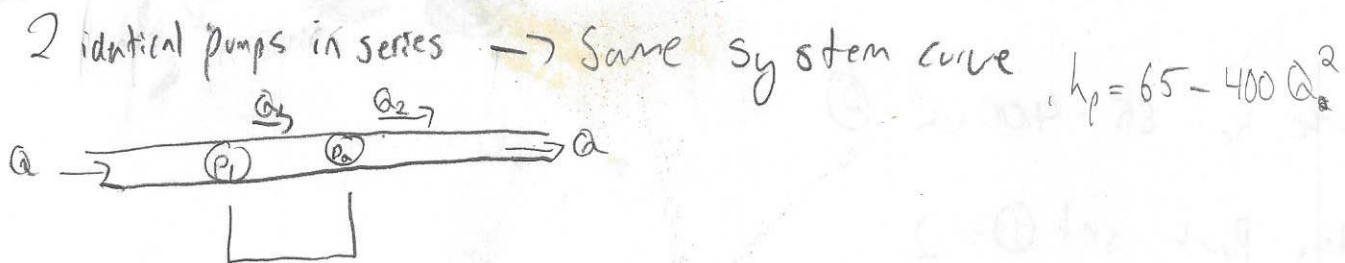 2 identical pumps in series -> Same system curve, hp = 65 - 400 Q²
Q₁ Q₂
Q P₁ P₂ Q